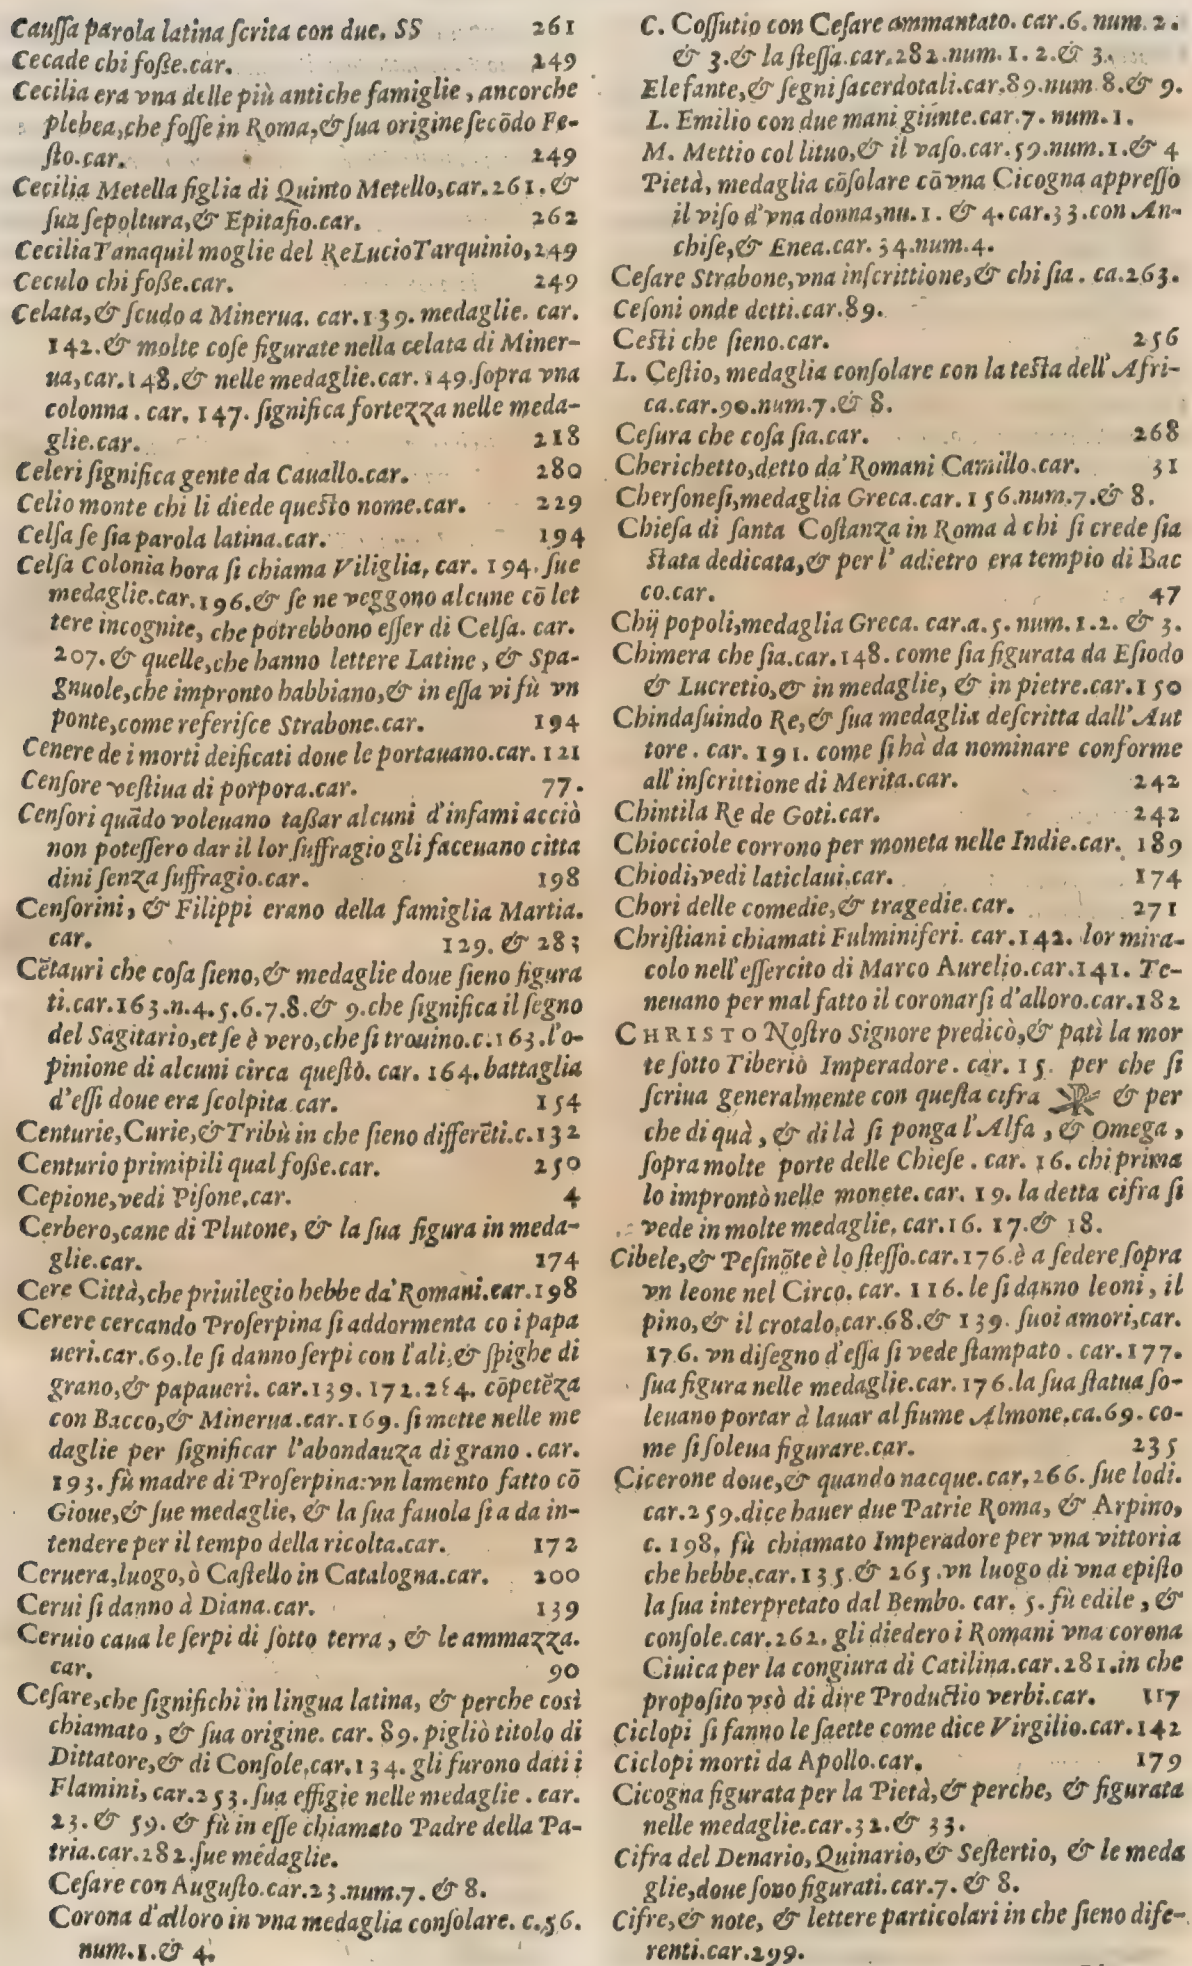 Cauſſa parola latina ſcrita con due. SS 261
Cecade chi foſſe.car. 249
Cecilia era vna delle più antiche famiglie, ancorche
plebea,che foſſe in Roma,& ſua origine ſecōdo Fe-
ſto.car. 249
Cecilia Metella figlia di Quinto Metello,car.261.&
ſua ſepoltura,& Epitafio.car. 262
Cecilia Tanaquil moglie del Re Lucio Tarquinio,249
Ceculo chi foſſe.car. 249
Celata,& ſcudo a Minerua. car.139. medaglie. car.
142.& molte coſe figurate nella celata di Miner-
ua,car.148.& nelle medaglie.car.149.ſopra vna
colonna. car. 147. ſignifica fortezza nelle meda-
glie.car. 218
Celeri ſignifica gente da Cauallo.car. 280
Celio monte chi li diede queſto nome.car. 229
Celſa ſe ſia parola latina.car. 194
Celſa Colonia hora ſi chiama Viliglia, car. 194. ſue
medaglie.car.196.& ſe ne veggono alcune cō let
tere incognite, che potrebbono eſſer di Celſa. car.
207.& quelle,che hanno lettere Latine, & Spa-
gnuole,che impronto habbiano,& in eſſa vi fù vn
ponte,come referiſce Strabone.car. 194
Cenere de i morti deificati doue le portauano.car. 121
Cenſore veſtiua di porpora.car. 77.
Cenſori quādo voleuano taſſar alcuni d'infami acciò
non poteſſero dar il lor ſuffragio gli faceuano citta
dini ſenza ſuffragio.car. 198
Cenſorini, & Filippi erano della famiglia Martia.
car. 129. & 283
Cētauri che coſa ſieno,& medaglie doue ſieno figura
ti.car.163.n.4.5.6.7.8.& 9.che ſignifica il ſegno
del Sagitario,et ſe è vero,che ſi trouino.c.163.l'o-
pinione di alcuni circa queſto. car. 164. battaglia
d'eſſi doue era ſcolpita car. 154
Centurie,Curie,& Tribù in che ſieno differēti.c.132
Centurio primipili qual foſſe.car. 250
Cepione,vedi Piſone.car. 4
Cerbero,cane di Plutone, & la ſua figura in meda-
glie.car. 174
Cere Città,che priuilegio hebbe da' Romani.car.198
Cerere cercando Proſerpina ſi addormenta co i papa
ueri.car.69.le ſi danno ſerpi con l'ali,& ſpighe di
grano,& papaueri. car.139. 172. cōpetēza
con Bacco,& Minerua.car.169. ſi mette nelle me
daglie per ſignificar l'abondauza di grano. car.
193. fù madre di Proſerpina:vn lamento fatto cō
Gioue,& ſue medaglie, & la ſua fauola ſi a da in-
tendere per il tempo della ricolta.car. 172
Ceruera,luogo,ò Caſtello in Catalogna.car. 200
Cerui ſi danno à Diana.car. 139
Ceruio caua le ſerpi di ſotto terra, & le ammazza.
car. 90
Ceſare,che ſignifichi in lingua latina, & perche così
chiamato, & ſua origine. car. 89. pigliò titolo di
Dittatore,& di Conſole,car.134. gli furono dati i
Flamini, car.253. ſua effigie nelle medaglie. car.
23.& 59.& fù in eſſe chiamato Padre della Pa-
tria.car.282.ſue medaglie.
Ceſare con Auguſto.car.23.num.7. & 8.
Corona d'alloro in vna medaglia conſolare. c.56.
num.1.& 4.
C. Coſſutio con Ceſare ammantato. car.6. num. 2.
& 3.& la ſteſſa.car.282.num.1. 2.& 3.
Elefante,& ſegni ſacerdotali.car.89.num 8.& 9.
L. Emilio con due mani giunte.car.7. num.1.
M. Mettio col lituo,& il vaſo.car.59.num.1.& 4
Pietà, medaglia cōſolare cō vna Cicogna appreſſo
il viſo d'vna donna,nu.1. & 4.car.33.con An-
chiſe,& Enea.car. 34.num.4.
Ceſare Strabone,vna inſcrittione,& chi ſia. ca.263.
Ceſoni onde detti.car.89.
Ceſti che ſieno.car. 256
L. Ceſtio, medaglia conſolare con la teſta dell'Afri-
ca.car.90.num.7.& 8.
Ceſura che coſa ſia.car. 268
Cherichetto,detto da' Romani Camillo.car. 31
Cherſoneſi,medaglia Greca.car.156.num.7.& 8.
Chieſa di ſanta Coſtanza in Roma à chi ſi crede ſia
ſtata dedicata,& per l'adietro era tempio di Bac
co.car. 47
Chij popoli,medaglia Greca. car.a.5. num.1.2. & 3.
Chimera che ſia.car.148. come ſia figurata da Eſiodo
& Lucretio,& in medaglie, & in pietre.car.150
Chindaſuindo Re,& ſua medaglia deſcritta dall'Aut
tore. car. 191. come ſi hà da nominare conforme
all'inſcrittione di Merita.car. 242
Chintila Re de Goti.car. 242
Chiocciole corrono per moneta nelle Indie.car. 189
Chiodi,vedi laticlaui.car. 174
Chori delle comedie,& tragedie.car. 271
Chriſtiani chiamati Fulminiferi. car.142. lor mira-
colo nell'eſſercito di Marco Aurelio.car.141. Te-
neuano per mal fatto il coronarſi d'alloro.car.182
CHRISTO Noſtro Signore predicò,& patì la mor
te ſotto Tiberio Imperadore. car. 15. per che ſi
ſcriua generalmente con queſta cifra & per
che di quà, & di là ſi ponga l'Alfa, & Omega,
ſopra molte porte delle Chieſe. car. 16. chi prima
lo improntò nelle monete. car. 19. la detta cifra ſi
vede in molte medaglie, car.16. 17.& 18.
Cibele,& Peſinōte è lo ſteſſo.car.176.è a ſedere ſopra
vn leone nel Circo. car. 116. le ſi danno leoni, il
pino,& il crotalo,car.68.& 139. ſuoi amori,car.
176. vn diſegno d'eſſa ſi vede ſtampato. car.177.
ſua figura nelle medaglie.car. 176.la ſua ſtatua ſo-
leuano portar à lauar al fiume Almone.ca.69. co-
me ſi ſoleua figurare.car. 235
Cicerone doue,& quando nacque.car,266. ſue lodi.
car.259.dice hauer due Patrie Roma, & Arpino,
c. 198. fù chiamato Imperadore per vna vittoria
che hebbe.car.135.& 265.vn luogo di vna epiſto
la ſua interpretato dal Bembo. car. 5. fù edile, &
conſole.car.262. gli diedero i Romani vna corona
Ciuica per la congiura di Catilina.car.281.in che
propoſito vsò di dire Productio verbi.car. 117
Ciclopi ſi fanno le ſaette come dice Virgilio.car.142
Ciclopi morti da Apollo.car. 179
Cicogna figurata per la Pietà,& perche, & figurata
nelle medaglie.car.32.& 33.
Cifra del Denario,Quinario,& Seſtertio, & le meda
glie,doue ſono figurati.car.7. & 8.
Cifre,& note, & lettere particolari in che ſieno dife-
renti.car.299.